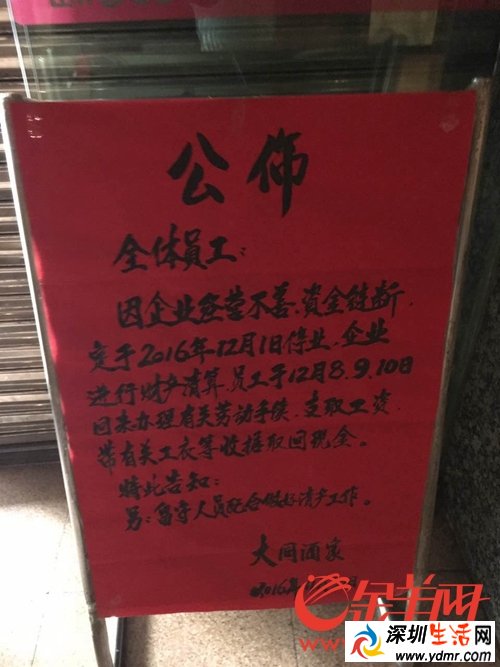 公佈
全体员工:
因企业经营不善、资金链断,
定于2016年12月1日停业、企业
进行财产清算、员工于12月8、9、10日
回来办理有关劳动手续、支取工资、
带有关工衣等收据取回现金。
特此告知:
另:留守人员配合做好清产工作。
大同酒家
2016年
金羊网
深圳生活网
www.ydmr.com